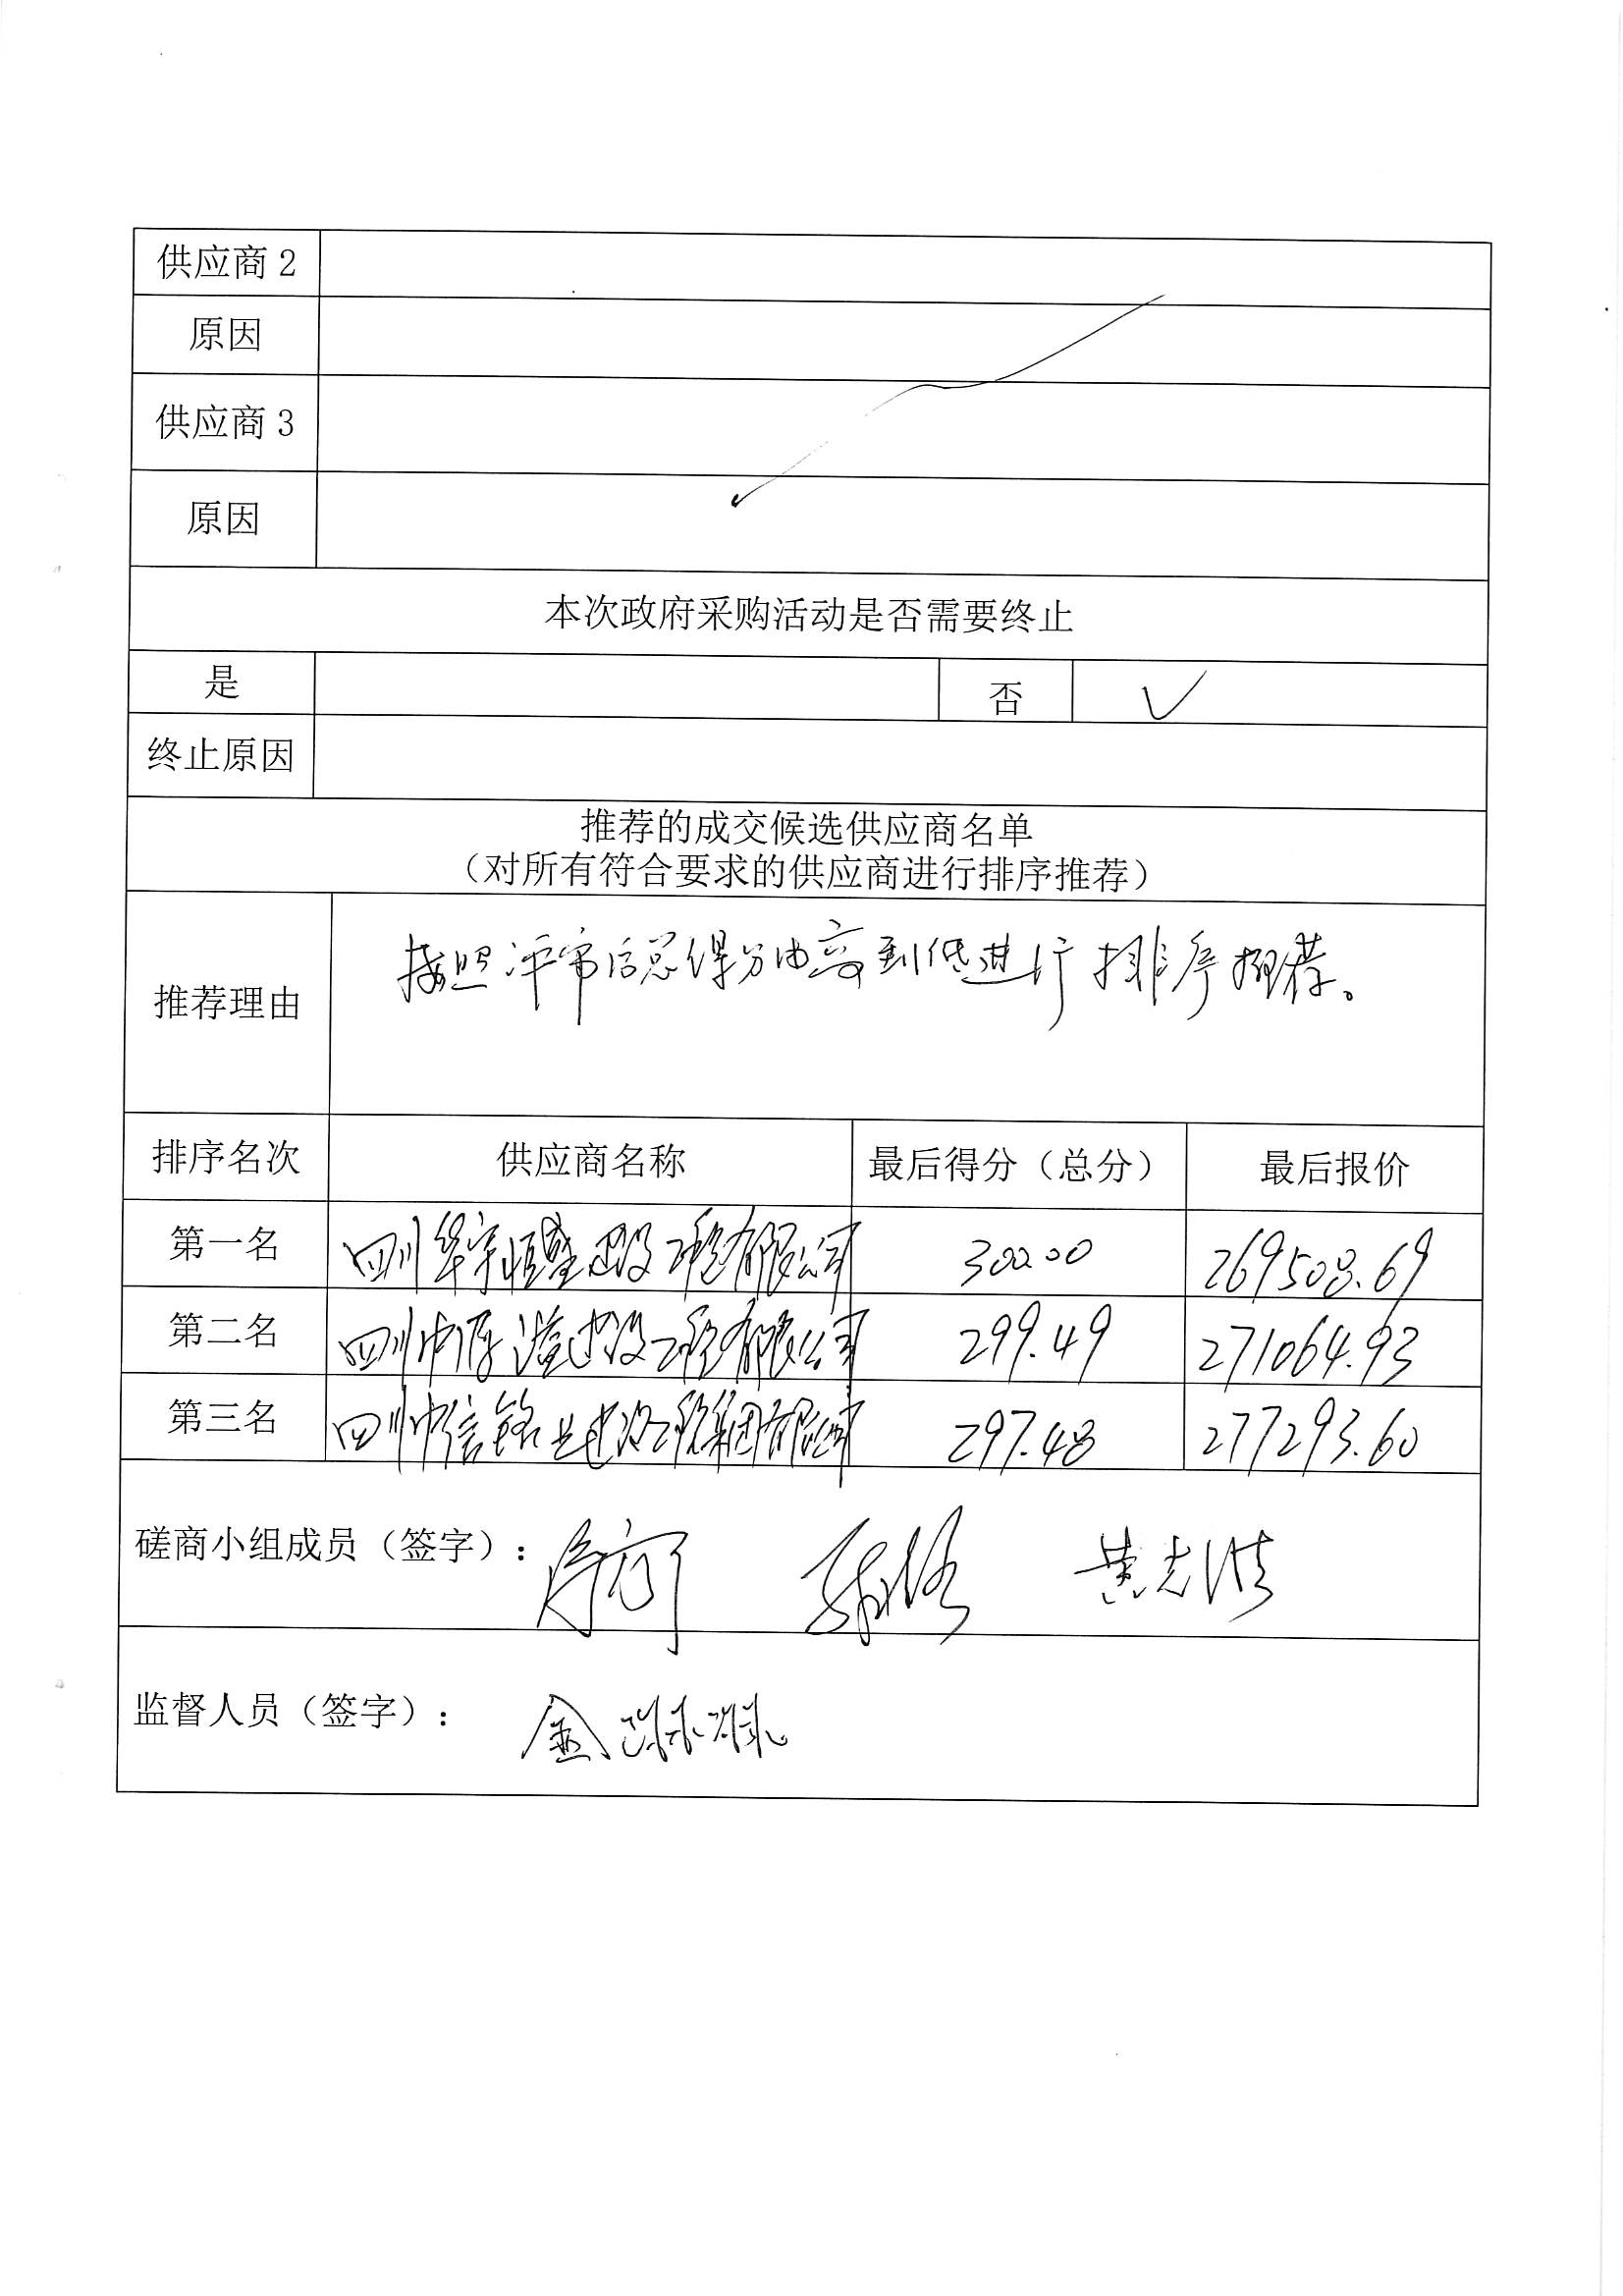 供应商2
原因
供应商3
原因
本次政府采购活动是否需要终止
是 否 √
终止原因
推荐的成交候选供应商名单
（对所有符合要求的供应商进行排序推荐）
推荐理由 按照评审后总得分由高到低进行排序推荐。
排序名次 供应商名称 最后得分（总分） 最后报价
第一名 四川华宇恒盛建设工程有限公司 300.00 269508.69
第二名 四川中厚溢建设工程有限公司 299.49 271064.93
第三名 四川中信铭 建设工程集团有限公司 297.48 277293.60
磋商小组成员（签字）： 黄志洪
监督人员（签字）： 金